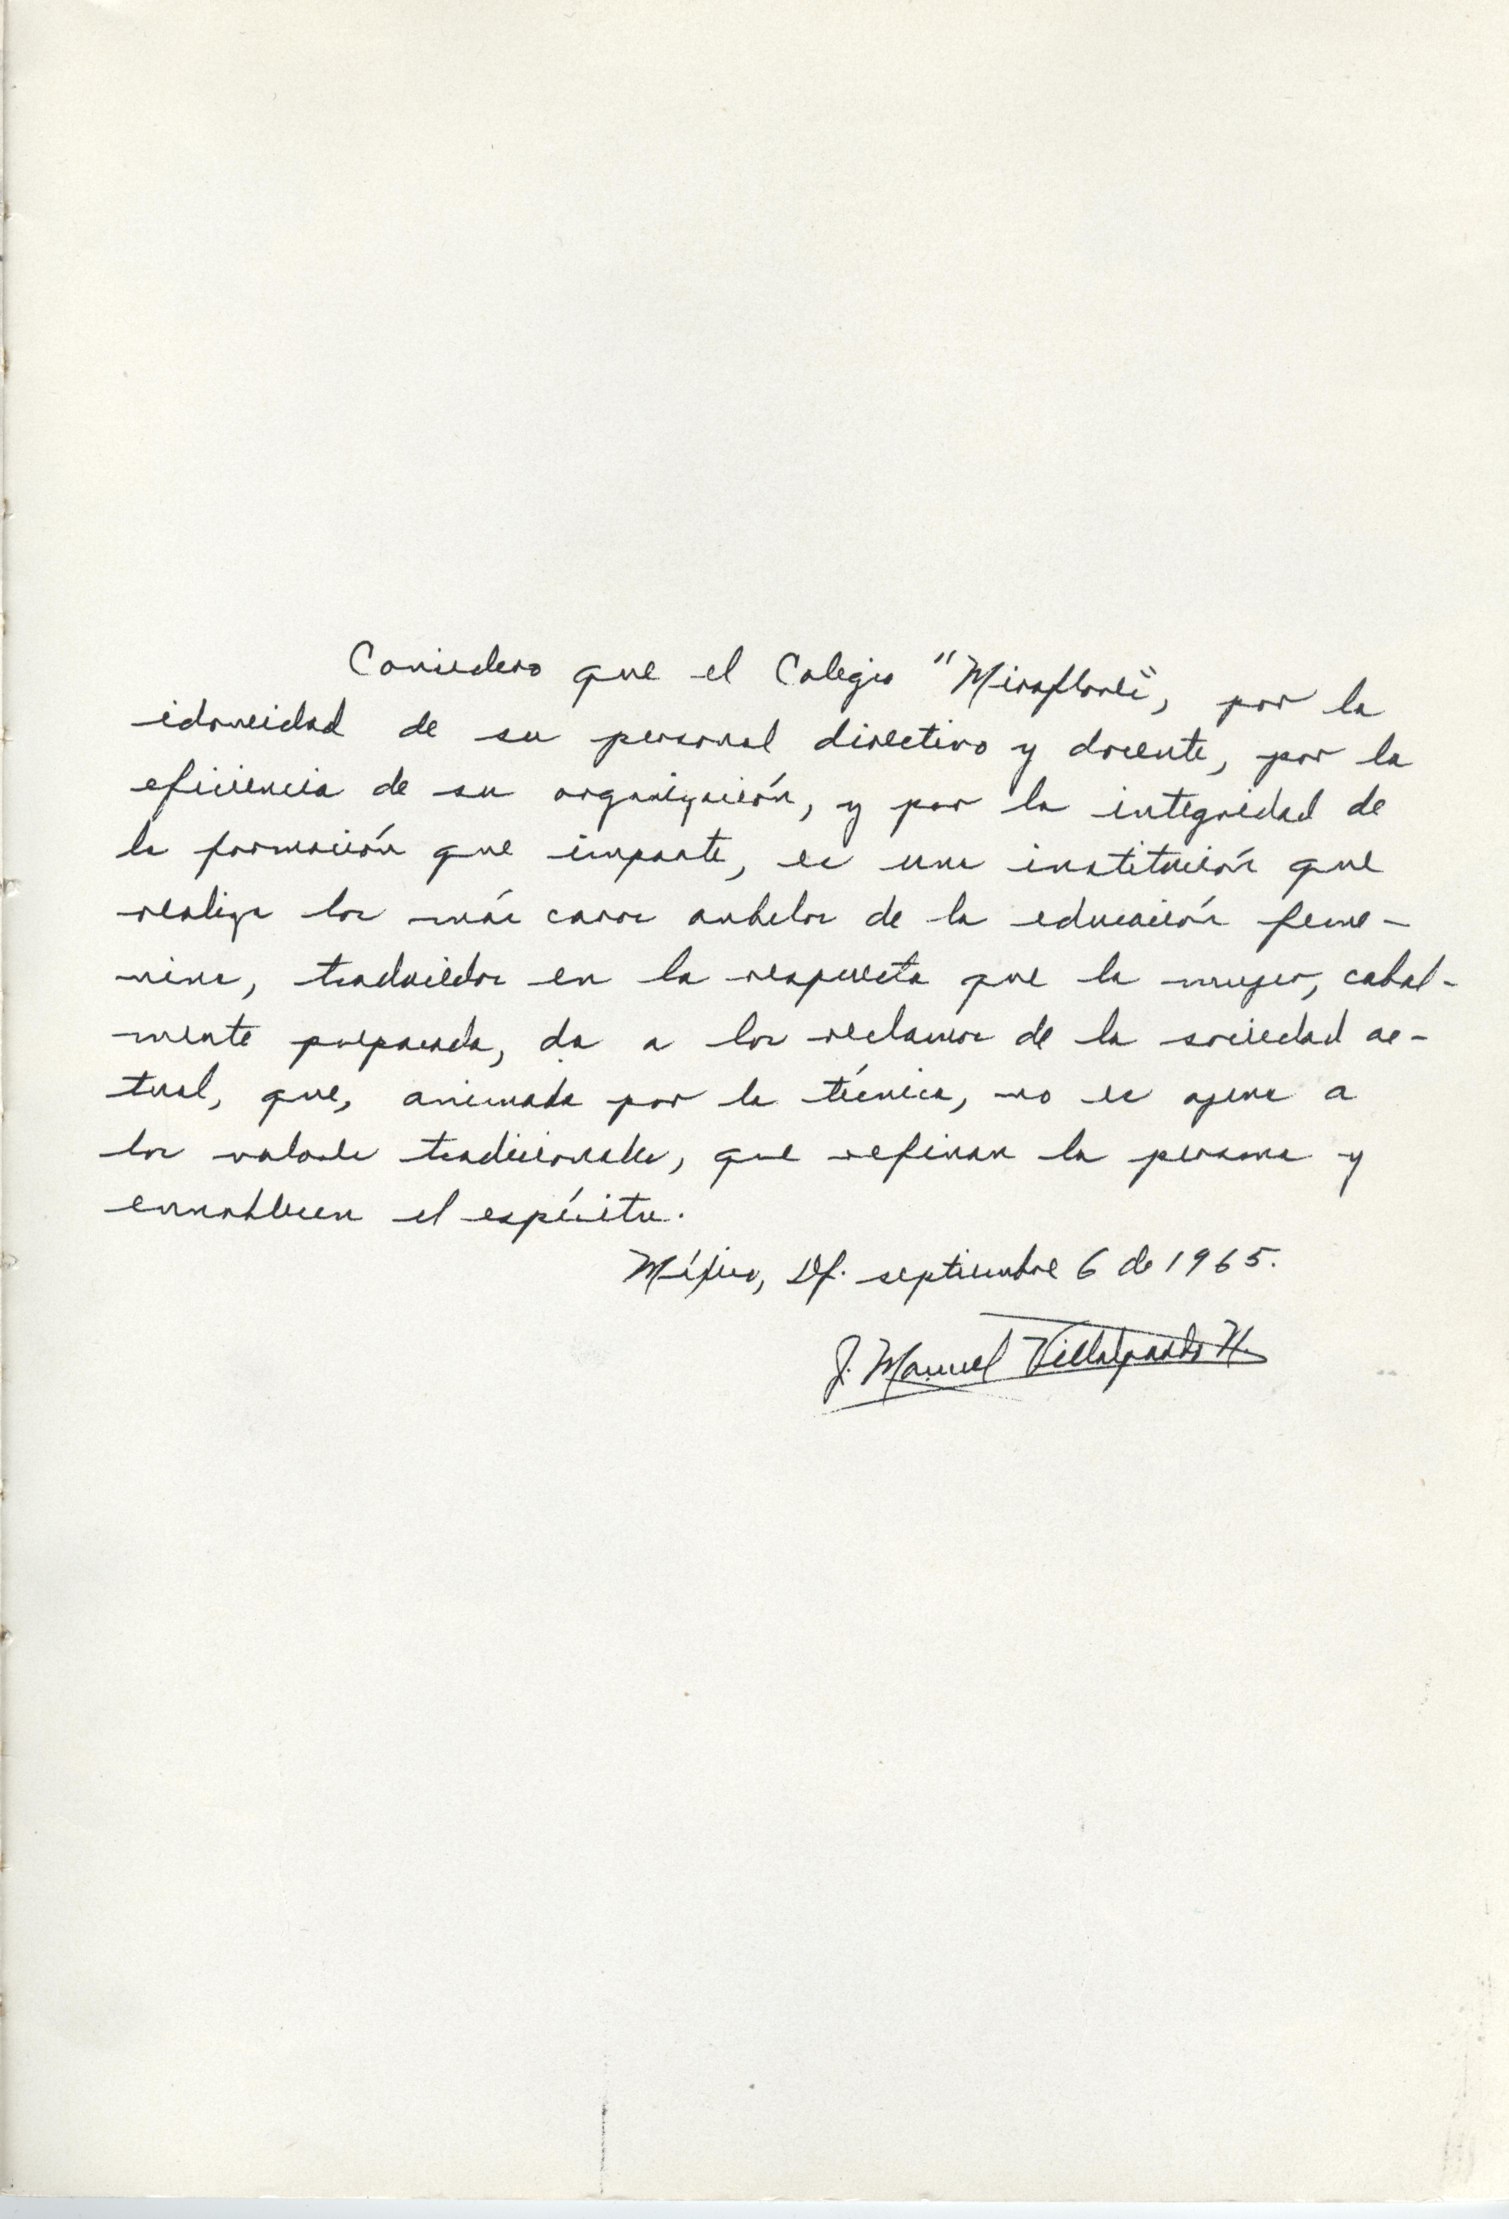 Considero que el Colegio "Miraflores", por la
idoneidad de su personal directivo y docente, por la
eficiencia de su organización, y por la integridad de
la formación que imparte, es una institución que
realiza los más caros anhelos de la educación feme-
nina, traducidos en la respuesta que la mujer, cabal-
mente preparada, da a los reclamos de la sociedad ac-
tual, que, animada por la técnica, no es ajena a
los valores tradicionales, que refinan la persona y
ennoblecen el espíritu.
México, Df. septiembre 6 de 1965.
J. Manuel Villalpando N.